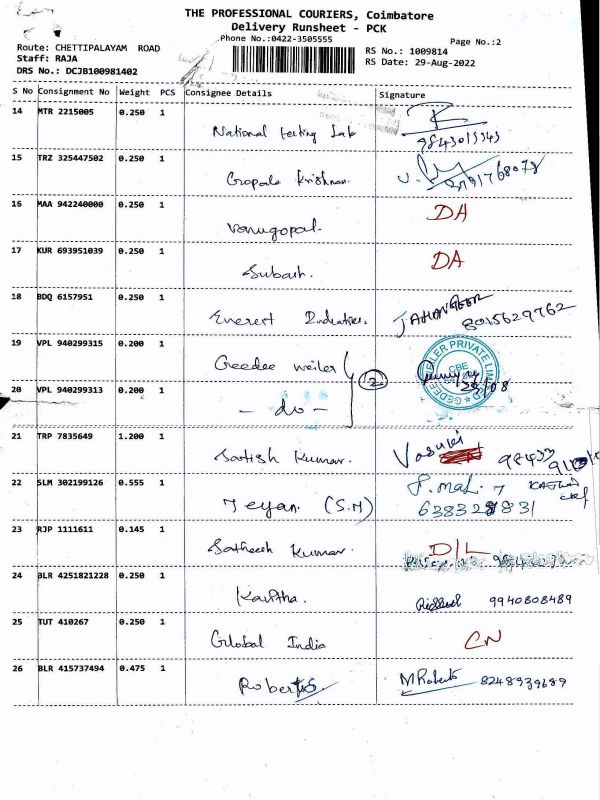 THE PROFESSIONAL COURIERS, Coimbatore
Delivery Runsheet - PCK
Phone No.:0422-3505555
Page No.:2
Route: CHETTIPALAYAM ROAD
Staff: RAJA
DRS No.: DCJB100981402
RS No.: 1009814
RS Date: 29-Aug-2022
S No Consignment No Weight PCS Consignee Details Signature
14 MTR 2215005 0.250 1 National testing Lab 9843013343
15 TRZ 325447502 0.250 1 Gopala Krishnan.
16 MAA 942240000 0.250 1 Venugopal. DA
17 KUR 693951039 0.250 1 Subash. DA
18 BDQ 6157951 0.250 1 Everest Industries. JAHANGEER 8015629762
19 VPL 940299315 0.200 1 Geedee weiler 2
20 VPL 940299313 0.200 1 - do -
21 TRP 7835649 1.200 1 Satish Kumar. Vasuki 98433
22 SLM 302199126 0.555 1 Jeyan (S.M) P. mal.
23 RJP 1111611 0.145 1 Satheesh Kumar. D/L
24 BLR 4251821228 0.250 1 Kavitha. 9940808489
25 TUT 410267 0.250 1 Global India CN
26 BLR 415737494 0.475 1 Roberts M Roberts 8248939689